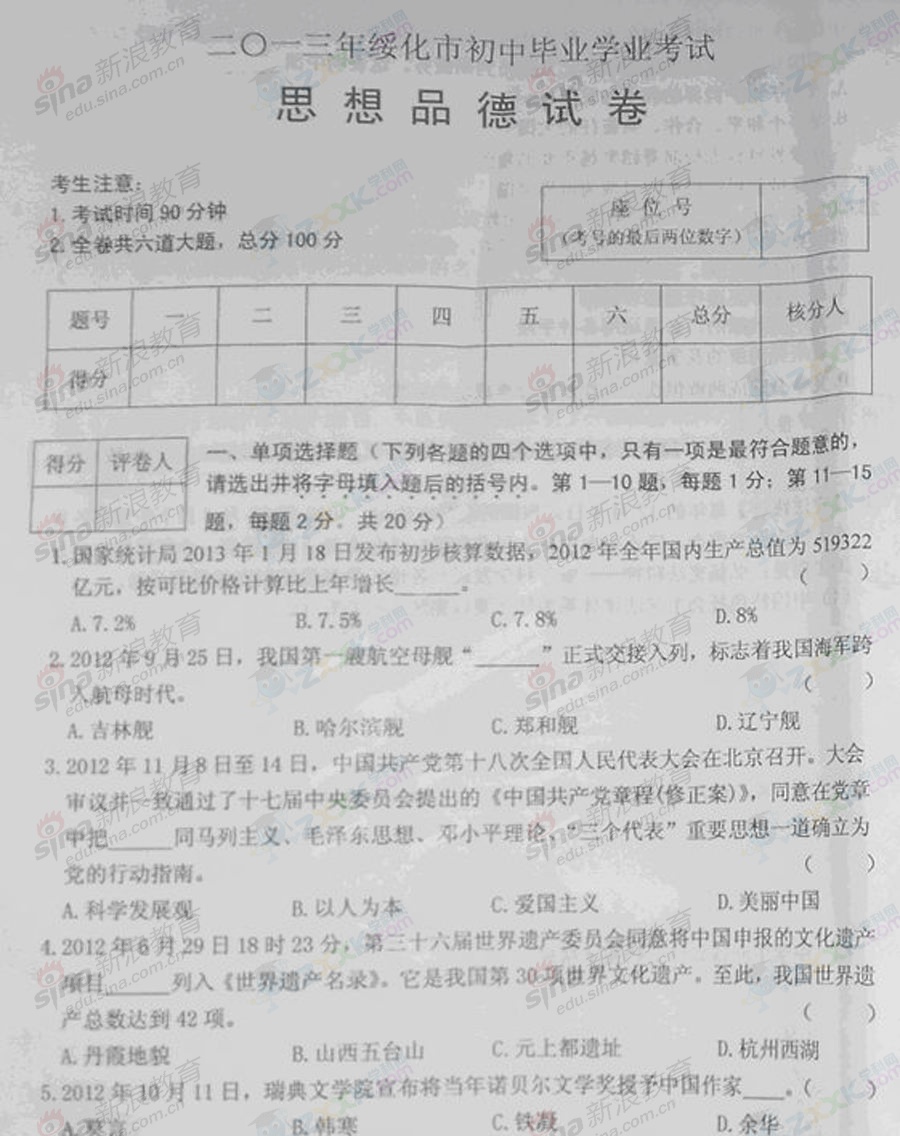 二〇一三年绥化市初中毕业学业考试
思想品德试卷
考生注意：
1.考试时间90分钟
2.全卷共六道大题，总分100分
座位号
（考号的最后两位数字）
题号 一 二 三 四 五 六 总分 核分人
得分
得分 评卷人
一、单项选择题（下列各题的四个选项中，只有一项是最符合题意的，
请选出并将字母填入题后的括号内。第1—10题，每题1分；第11—15
题，每题2分。共20分）
1.国家统计局2013年1月18日发布初步核算数据，2012年全年国内生产总值为519322
亿元，按可比价格计算比上年增长______。 （ ）
A.7.2% B.7.5% C.7.8% D.8%
2.2012年9月25日，我国第一艘航空母舰“______”正式交接入列，标志着我国海军跨
入航母时代。 （ ）
A.吉林舰 B.哈尔滨舰 C.郑和舰 D.辽宁舰
3.2012年11月8日至14日，中国共产党第十八次全国人民代表大会在北京召开。大会
审议并一致通过了十七届中央委员会提出的《中国共产党章程(修正案)》，同意在党章
中把______同马列主义、毛泽东思想、邓小平理论、“三个代表”重要思想一道确立为
党的行动指南。 （ ）
A.科学发展观 B.以人为本 C.爱国主义 D.美丽中国
4.2012年6月29日18时23分，第三十六届世界遗产委员会同意将中国申报的文化遗产
项目______列入《世界遗产名录》。它是我国第30项世界文化遗产。至此，我国世界遗
产总数达到42项。 （ ）
A.丹霞地貌 B.山西五台山 C.元上都遗址 D.杭州西湖
5.2012年10月11日，瑞典文学院宣布将当年诺贝尔文学奖授予中国作家____。（ ）
A.莫言 B.韩寒 C.铁凝 D.余华
sina新浪教育
edu.sina.com.cn
ZXXK.com
学科网